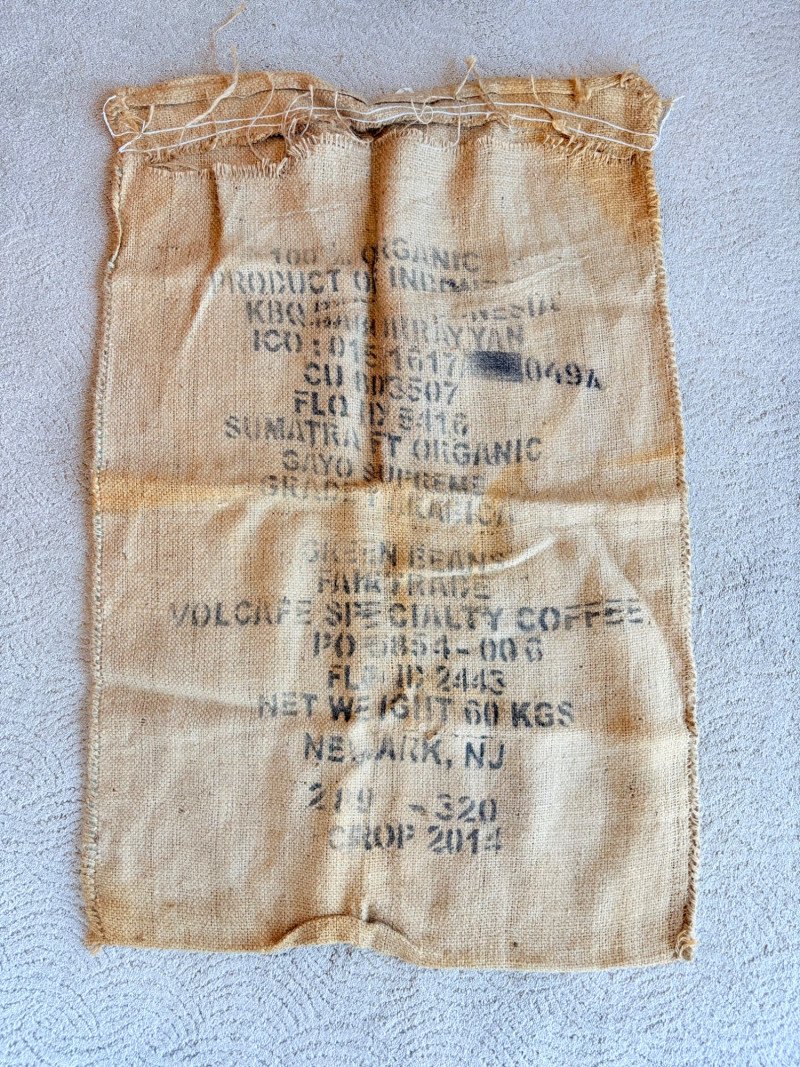 100 % ORGANIC
PRODUCT OF INDONESIA
KBQ
ICO : 015 1617 049A
CU 803507
FLO ID 5416
SUMATRA FT ORGANIC
GAYO SUPREME
GRADE 1 ARABICA
GREEN BEANS
FAIRTRADE
VOLCAFE SPECIALTY COFFEE
PO 5854-006
FLO ID 2443
NET WEIGHT 60 KGS
NEWARK, NJ
-320
CROP 2014